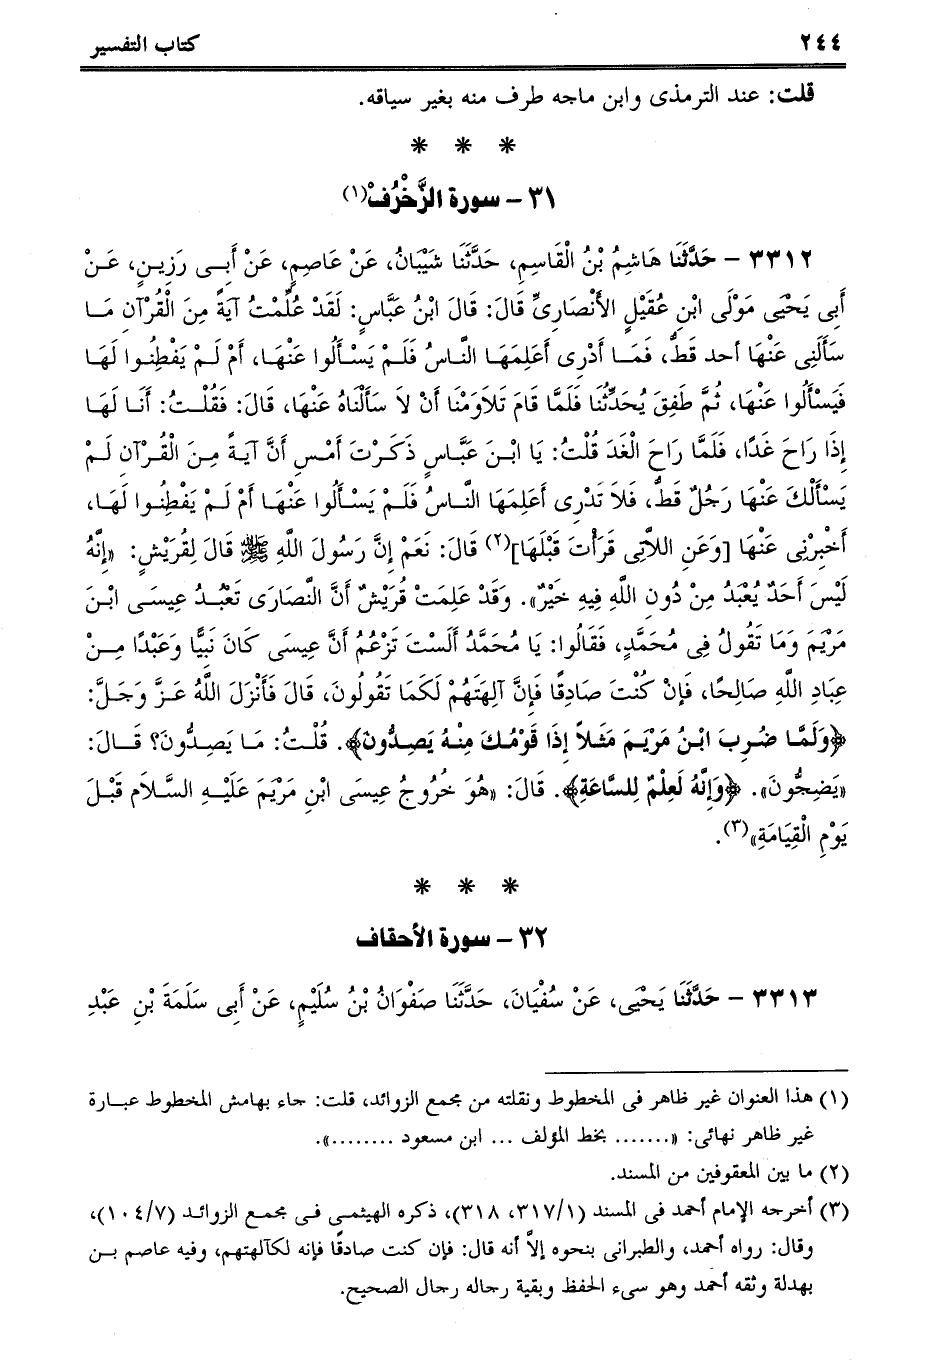 ٢٤٤ كتاب التفسير
قلت: عند الترمذى وابن ماجه طرف منه بغير سياقه.
* * *
٣١ - سورة الزَّخْرُفْ(١)
٣٣١٢ - حَدَّثَنَا هَاشِمُ بْنُ الْقَاسِمِ، حَدَّثَنَا شَيْبَانُ، عَنْ عَاصِمٍ، عَنْ أَبِى رَزِينٍ، عَنْ
أَبِى يَحْيَى مَوْلَى ابْنِ عُقَيْلٍ الأَنْصَارِىِّ قَالَ: قَالَ ابْنُ عَبَّاسٍ: لَقَدْ عُلِّمْتُ آيَةً مِنَ الْقُرْآنِ مَا
سَأَلَنِى عَنْهَا أحد قَطُّ، فَمَا أَدْرِى أَعَلِمَهَا النَّاسُ فَلَمْ يَسْأَلُوا عَنْهَا، أَمْ لَمْ يَفْطِنُوا لَهَا
فَيَسْأَلُوا عَنْهَا، ثُمَّ طَفِقَ يُحَدِّثُنَا فَلَمَّا قَامَ تَلاَوَمْنَا أَنْ لاَ سَأَلْنَاهُ عَنْهَا، قَالَ: فَقُلْتُ: أَنَا لَهَا
إِذَا رَاحَ غَدًا، فَلَمَّا رَاحَ الْغَدَ قُلْتُ: يَا ابْنَ عَبَّاسٍ ذَكَرْتَ أَمْسِ أَنَّ آيَةً مِنَ الْقُرْآنِ لَمْ
يَسْأَلْكَ عَنْهَا رَجُلٌ قَطُّ، فَلاَ تَدْرِى أَعَلِمَهَا النَّاسُ فَلَمْ يَسْأَلُوا عَنْهَا أَمْ لَمْ يَفْطِنُوا لَهَا،
أَخْبِرْنِى عَنْهَا [وَعَنِ اللاَّتِى قَرَأْتَ قَبْلَهَا](٢) قَالَ: نَعَمْ إِنَّ رَسُولَ اللَّهِ ﷺ قَالَ لِقُرَيْشٍ: «إِنَّهُ
لَيْسَ أَحَدٌ يُعْبَدُ مِنْ دُونِ اللَّهِ فِيهِ خَيْرٌ». وَقَدْ عَلِمَتْ قُرَيْشٌ أَنَّ النَّصَارَى تَعْبُدُ عِيسَى ابْنَ
مَرْيَمَ وَمَا تَقُولُ فِى مُحَمَّدٍ، فَقَالُوا: يَا مُحَمَّدُ أَلَسْتَ تَزْعُمُ أَنَّ عِيسَى كَانَ نَبِيًّا وَعَبْدًا مِنْ
عِبَادِ اللَّهِ صَالِحًا، فَإِنْ كُنْتَ صَادِقًا فَإِنَّ آلِهَتَهُمْ لَكَمَا تَقُولُونَ، قَالَ فَأَنْزَلَ اللَّهُ عَزَّ وَجَلَّ:
﴿وَلَمَّا ضُرِبَ ابْنُ مَرْيَمَ مَثَلاً إِذَا قَوْمُكَ مِنْهُ يَصِدُّونَ﴾. قُلْتُ: مَا يَصِدُّونَ؟ قَالَ:
«يَضِجُّونَ». ﴿وَإِنَّهُ لَعِلْمٌ لِلسَّاعَةِ﴾. قَالَ: «هُوَ خُرُوجُ عِيسَى ابْنِ مَرْيَمَ عَلَيْهِ السَّلاَم قَبْلَ
يَوْمِ الْقِيَامَةِ»(٣).
* * *
٣٢ - سورة الأحقاف
٣٣١٣ - حَدَّثَنَا يَحْيَى، عَنْ سُفْيَانَ، حَدَّثَنَا صَفْوَانُ بْنُ سُلَيْمٍ، عَنْ أَبِى سَلَمَةَ بْنِ عَبْدِ
(١) هذا العنوان غير ظاهر فى المخطوط ونقلته من مجمع الزوائد، قلت: جاء بهامش المخطوط عبارة
غير ظاهر نهائى: «....... بخط المؤلف ... ابن مسعود ........».
(٢) ما بين المعقوفين من المسند.
(٣) أخرجه الإمام أحمد فى المسند (٣١٧/١، ٣١٨)، ذكره الهيثمى فى مجمع الزوائد (١٠٤/٧)،
وقال: رواه أحمد، والطبرانى بنحوه إلاَّ أنه قال: فإن كنت صادقًا فإنه لكآلهتهم، وفيه عاصم بن
بهدلة وثقه أحمد وهو سىء الحفظ وبقية رجاله رجال الصحيح.